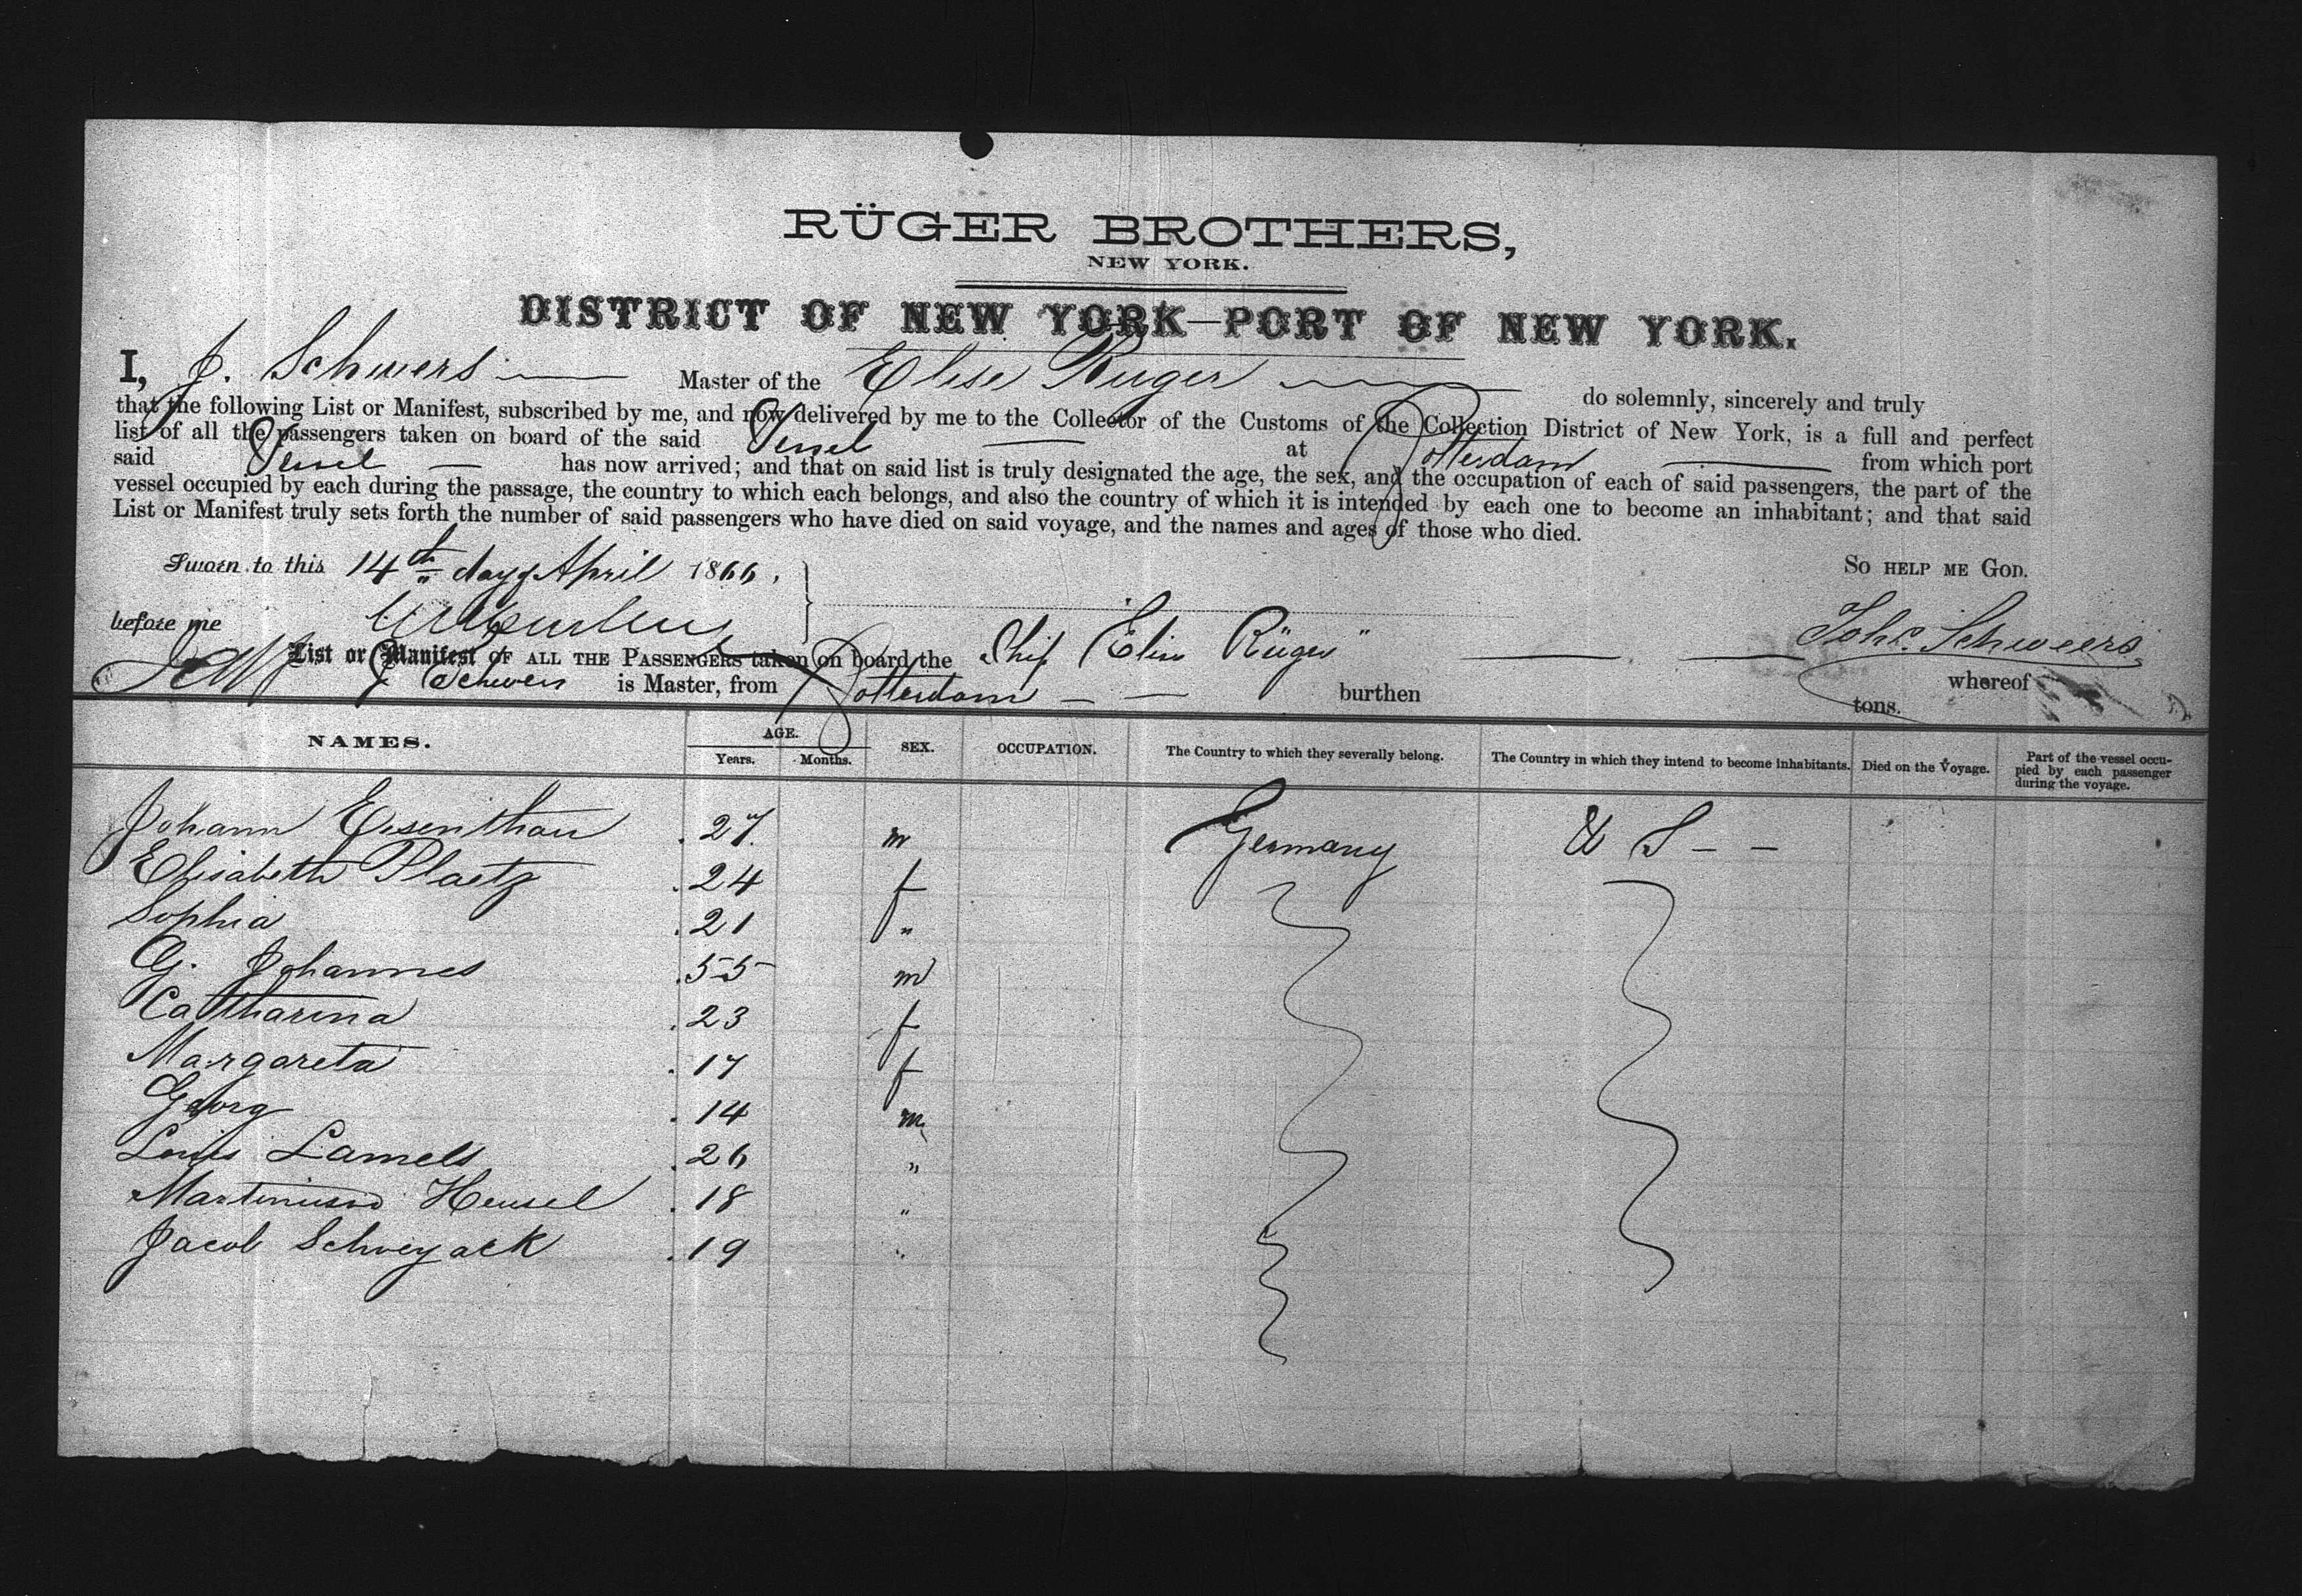 RÜGER BROTHERS,
NEW YORK.
DISTRICT OF NEW YORK—PORT OF NEW YORK.
I, J. Schwers Master of the Elise Ruger do solemnly, sincerely and truly
that the following List or Manifest, subscribed by me, and now delivered by me to the Collector of the Customs of the Collection District of New York, is a full and perfect
list of all the passengers taken on board of the said Vessel at Rotterdam from which port
said Vessel has now arrived; and that on said list is truly designated the age, the sex, and the occupation of each of said passengers, the part of the
vessel occupied by each during the passage, the country to which each belongs, and also the country of which it is intended by each one to become an inhabitant; and that said
List or Manifest truly sets forth the number of said passengers who have died on said voyage, and the names and ages of those who died.
Sworn to this 14th day of April 1866. So help me God.
before me Johs. Schweers
List or Manifest of all the Passengers taken on board the Ship Elise Rüger whereof
J. Schwers is Master, from Rotterdam burthen tons.
NAMES. AGE. Years. Months. SEX. OCCUPATION. The Country to which they severally belong. The Country in which they intend to become inhabitants. Died on the Voyage. Part of the vessel occupied by each passenger during the voyage.
Johann Eisenthau 27. m Germany U S - -
Elisabeth Plaetz 24 f
Sophia 21 "
G. Johannes 55 m
Catharina 23 f
Margareta 17 f
Georg 14 m
Louis Lamels 26 "
Martinius Heusel 18 "
Jacob Schweyack 19 "